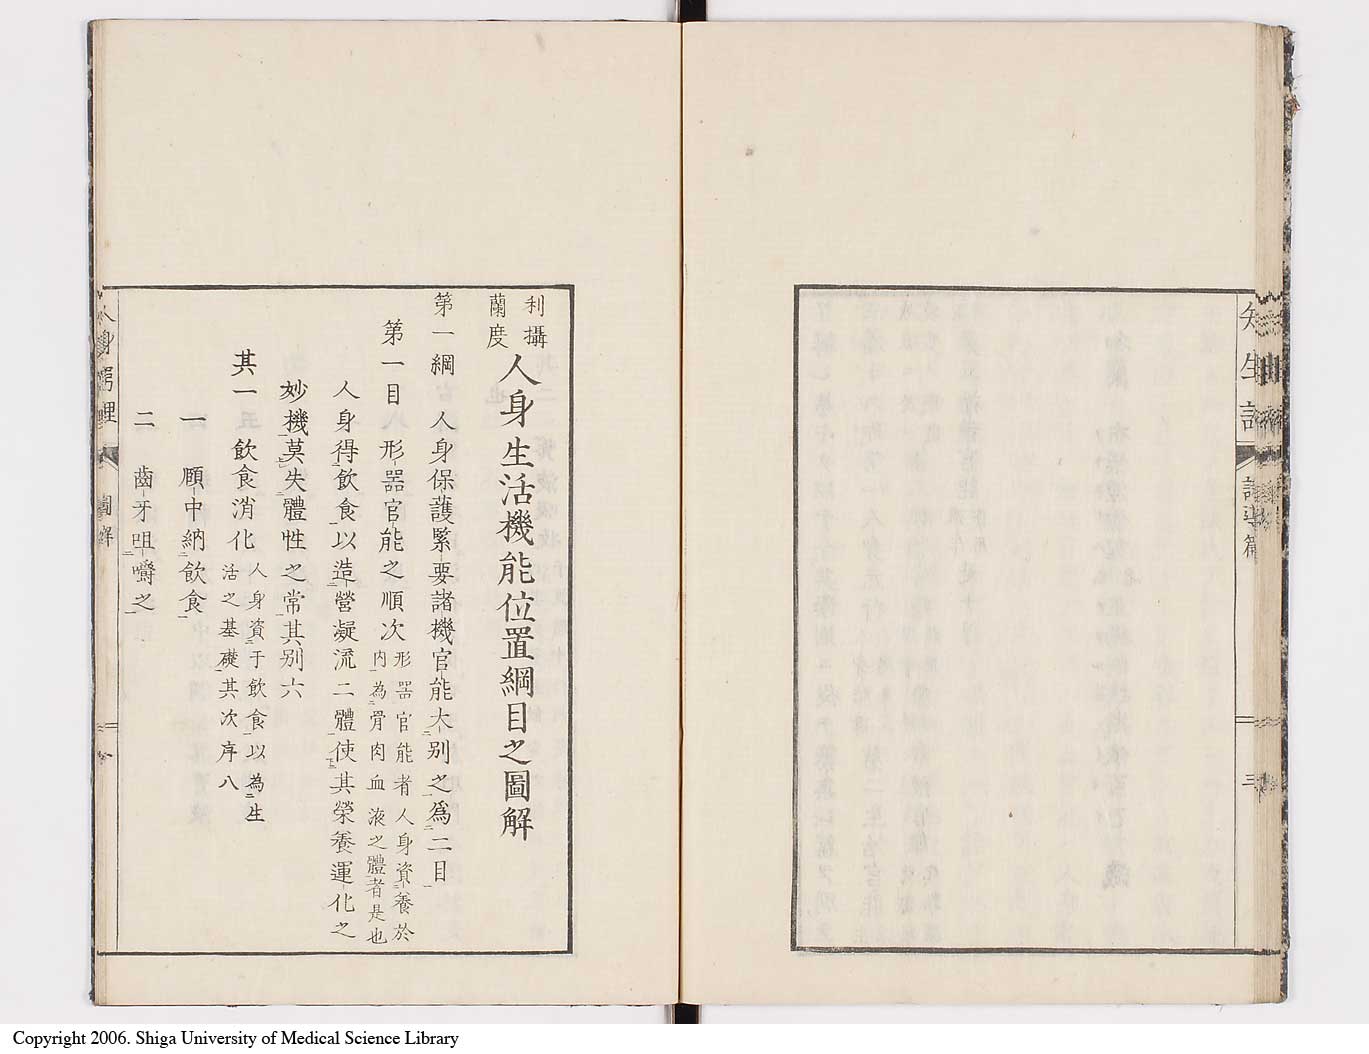 知生論
三
利攝
蘭度
人身生活機能位置綱目之圖解
第一綱 人身保護緊要諸機官能大別之爲二目
第一目 形器官能之順次
形器官能者人身資養於
内為骨肉血液之體者是也
人身得飲食以造營凝流二體使其榮養運化之
妙機莫失體性之常其別六
其一 飲食消化
人身資于飲食以為生
活之基礎其次序八
一 頤中納飲食
二 齒牙咀嚼之
人身窮理
圖解
Copyright 2006. Shiga University of Medical Science Library